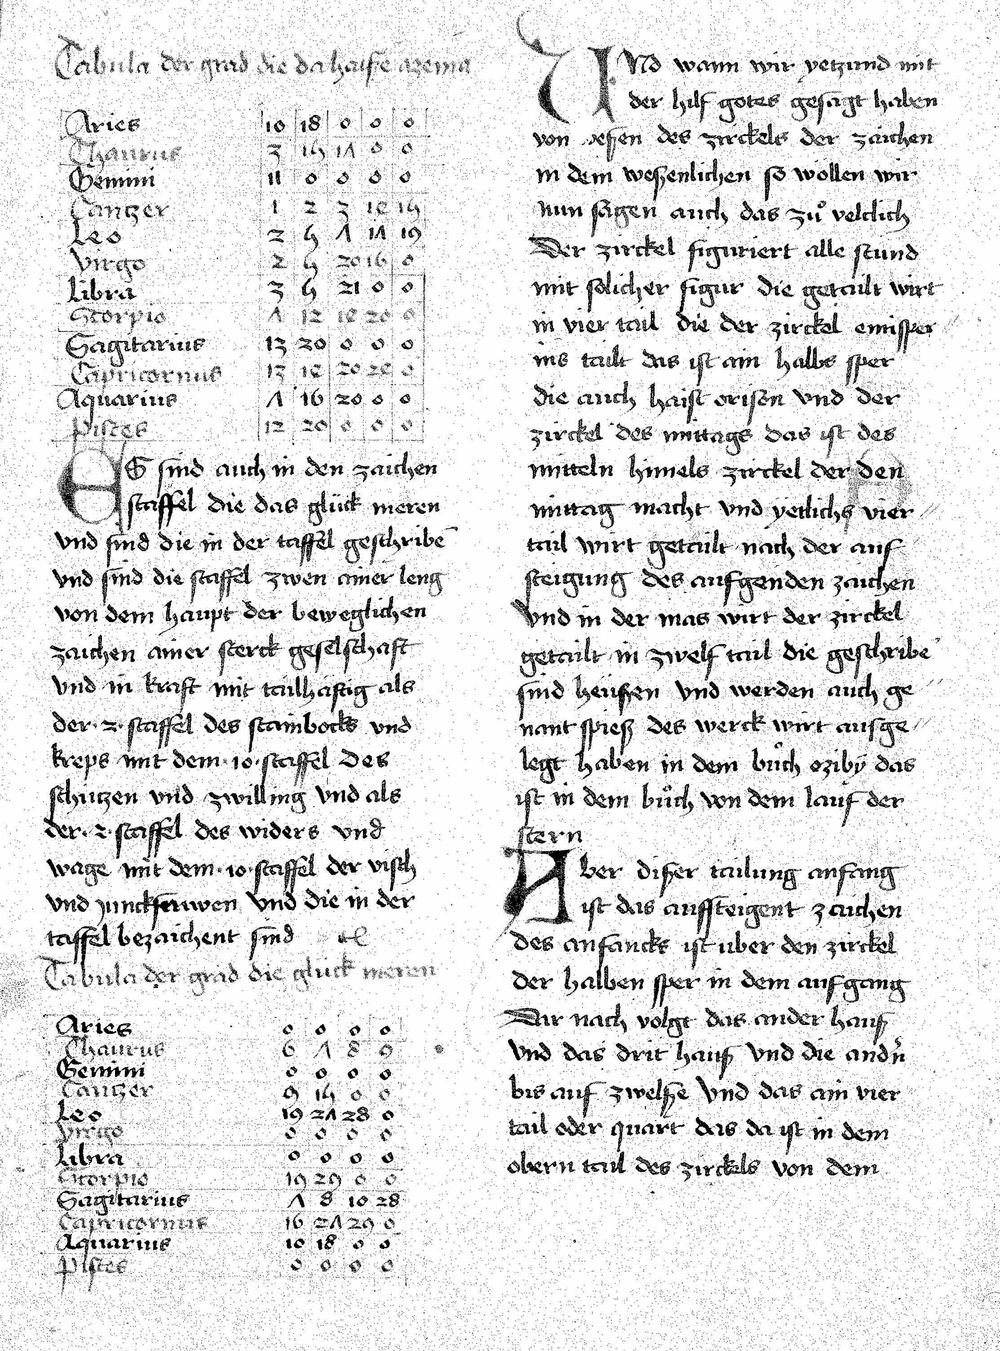 Tabula der grad die da haisse azema
Aries 10 18 0 0 0
Thaurus 3 15 17 0 0
Gemini 11 0 0 0 0
Cantzer 1 2 3 1e 15
Leo 2 5 7 17 19
Virgo 2 5 20 16 0
Libra 3 5 21 0 0
Scorpio 7 12 1e 20 0
Sagitarius 13 20 0 0 0
Capricornus 13 1e 20 2e 0
Aquarius 7 16 20 0 0
Pisces 12 20 0 0 0
ES sind auch in den zaichen
staffel die das glück meren
vnd sind die in der taffel geschribē
vnd sind die staffel zwen ainer leng
von dem haupt der beweglichen
zaichen ainer sterck geselschaft
vnd in kraft mit tailhaftig als
der ·2· staffel des stainbocks vnd
kreps mit dem ·10· staffel des
schützen vnd zwilling vnd als
der ·2· staffel des widers vnd
wage mit dem ·10· staffel der visch
vnd junckfrawen vnd die in der
taffel bezaichent sind
Tabula der grad die glück meren
Aries 0 0 0 0
Thaurus 6 7 8 9
Gemini 0 0 0 0
Cantzer 9 15 0 0
Leo 19 27 28 0
Virgo 0 0 0 0
Libra 0 0 0 0
Scorpio 19 29 0 0
Sagitarius 7 8 10 28
Capricornus 16 27 29 0
Aquarius 10 18 0 0
Pisces 0 0 0 0
VNd wann wir yetzund mit
der hilf gotes gesagt haben
von wesen des zirckels der zaichen
in dem weßenlichen so wöllen wir
nun sagen auch das zů veltlich
Der zirckel figuriert alle stund
mit sölicher figur die getailt wirt
in vier tail die der zirckel emisper
ins tailt das ist ain halbs sper
die auch haist orison vnd der
zirckel des mittags das ist des
mitteln himels zirckel der den
mittag macht vnd yetlichs vier
tail wirt getailt nach der auf
steigung des aufgenden zaichen
Vnd in der mas wirt der zirckel
getailt in zwelf tail die geschribē
sind heußen vnd werden auch ge
nant spieß des werck wirt ausge
legt haben in dem bůch oziby das
ist in dem bůch von dem lauf der
stern
Aber dißer tailung anfang
ist das auffsteigent zaichen
des anfancks ist uber den zirckel
der halben sper in dem aufgang
Dar nach volgt das ander hauß
vnd das drit hauß vnd die andrn
bis auf zwelße vnd das ain vier
tail oder quart das da ist in dem
obern tail des zirckels von dem